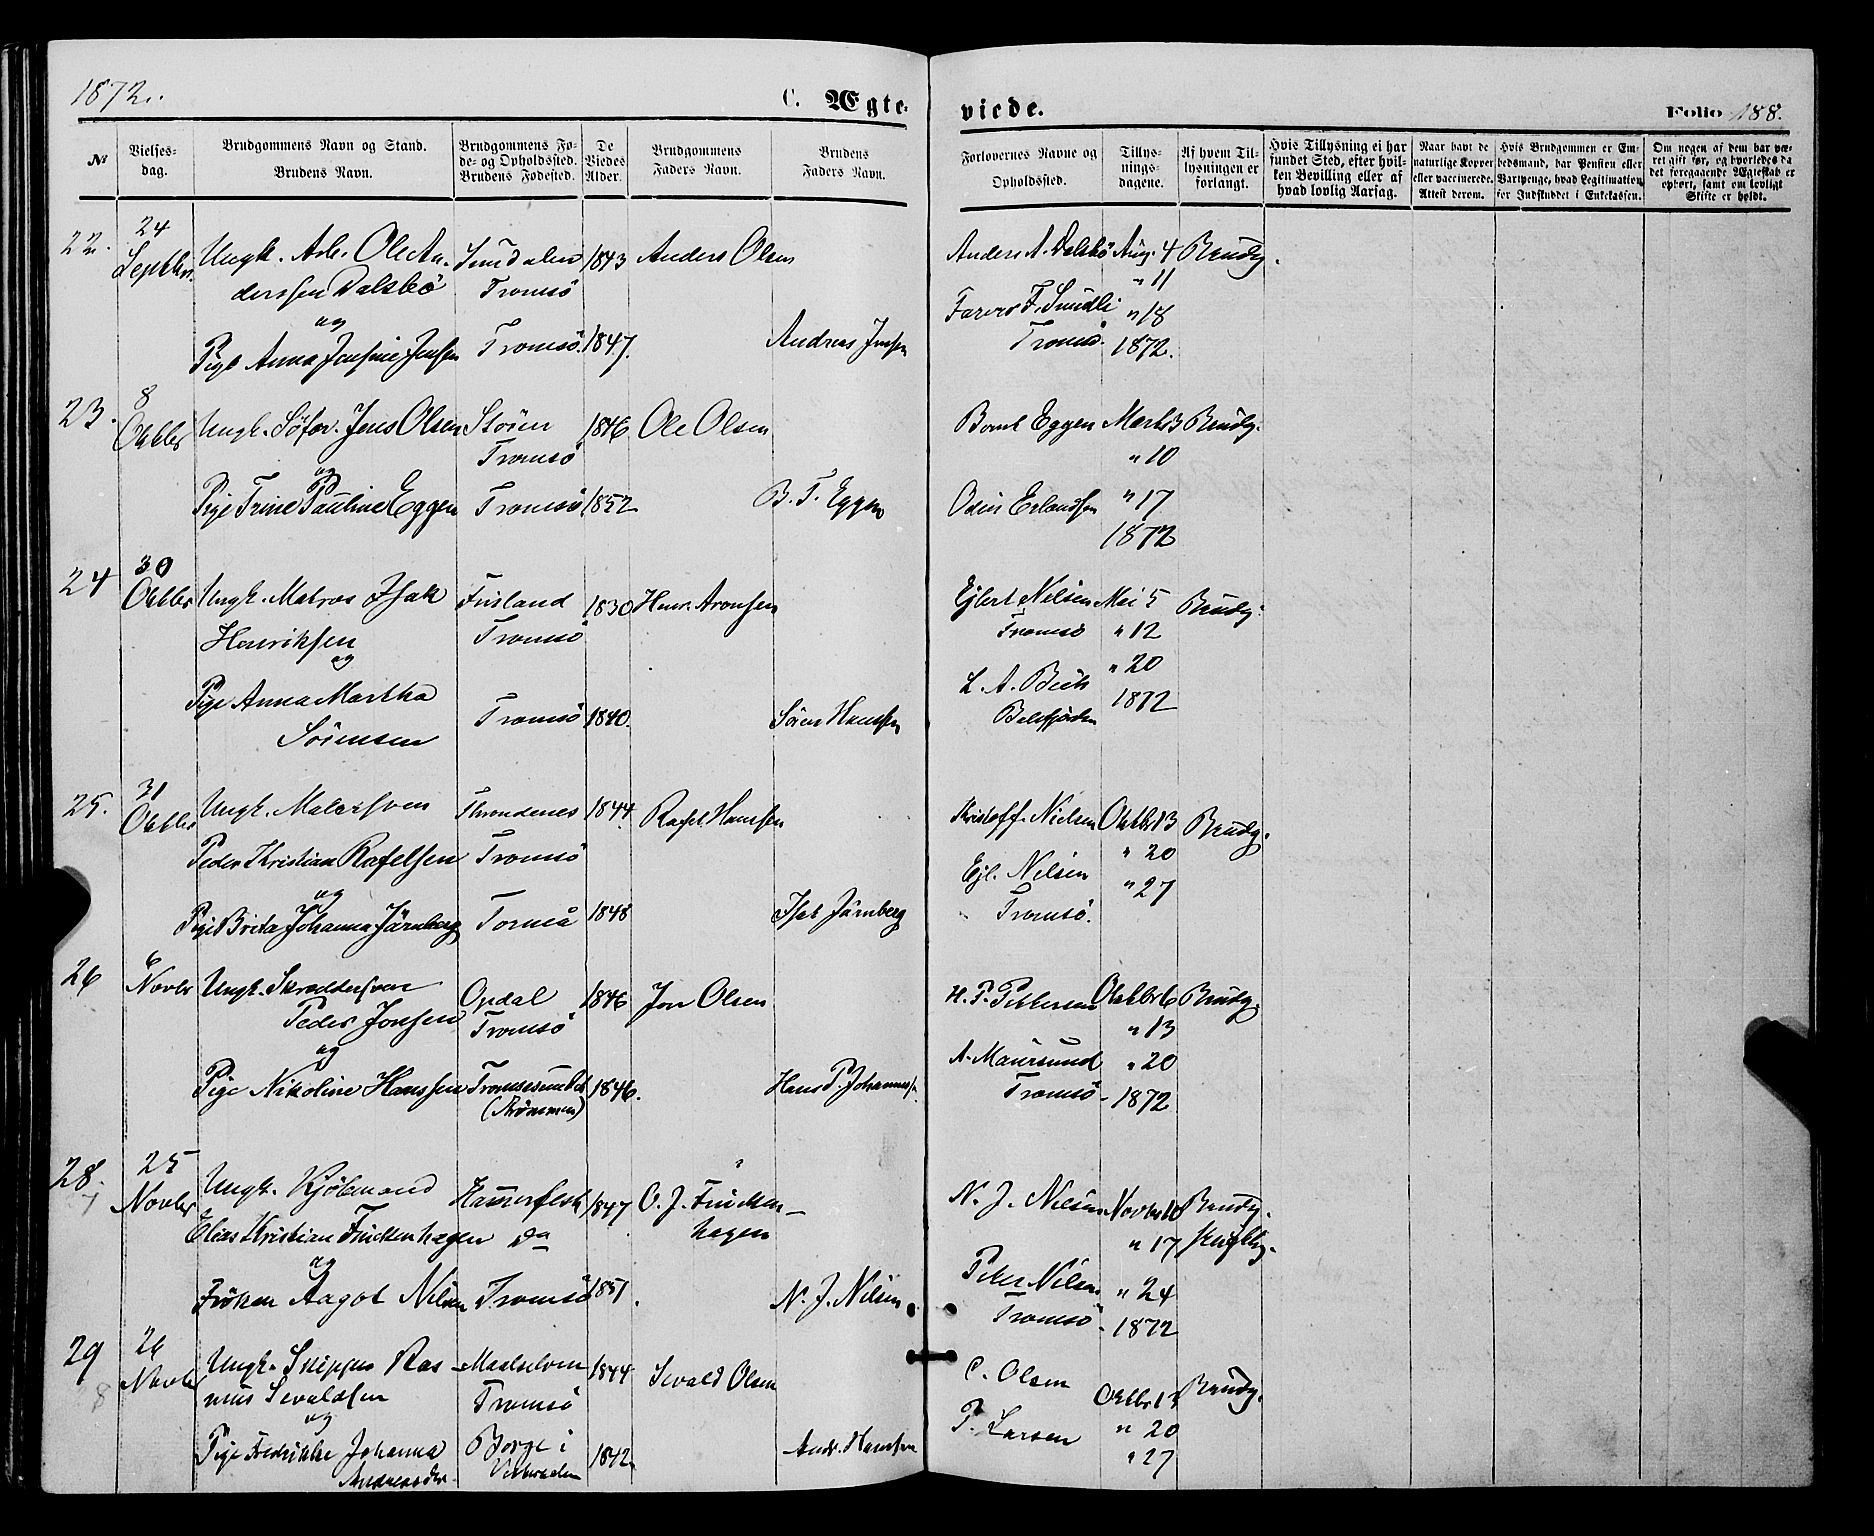 1872.
C. Ægte-
viede.
Folio 188.
№
Vielses-
dag.
Brudgommens Navn og Stand.
Brudens Navn.
Brudgommens Fø-
de- og Opholdssted.
Brudens Fødested.
De
Viedes
Alder.
Brudgommens
Faders Navn.
Brudens
Faders Navn.
Forlovernes Navne og
Opholdssted.
Tillys-
nings-
dagene.
Af hvem Til-
lysningen er
forlangt.
Hvis Tillysning ei har
fundet Sted, efter hvil-
ken Bevilling eller af
hvad lovlig Aarsag.
Naar havt de
naturlige Kopper
eller vaccinerede.
Attest derom.
Hvis Brudgommen er Em-
bedsmand, har Pension eller
Vartpenge, hvad Legitimation
for Indskuddet i Enkekassen.
Om nogen af dem har væ-
ret gift før, og hvorledes da
det foregaaende Ægteskab er
ophørt, samt om lovligt
Skifte er holdt.
22.
24
Septbr.
Ungk. Arb. Ole An-
derssen Dalsbö
og
Pige Anna Jensine Jensen
Sundalen
Tromsö
Tromsö
1843
1847.
Anders Olsen
Andreas Jensen
Anders A. Dalsbö
F. Sundli
Tromsö
Aug. 4
" 11
" 18
1872.
Brudg.
23.
8
Oktbr
Ungk. Jens Olsen
og
Pige Trine Pauline Eggen
Stören
Tromsö
Tromsö
1846
1852
Ole Olsen
B. T. Eggen
Bernt Eggen
Odin Erlandsen
Marts 3
" 10
" 17
1872
Brudg.
24
30
Oktbr
Ungk. Matros Isak
Henriksen
og
Pige Anna Martha
Sörensen
Finland
Tromsö
Tromsö
1830
1840.
Henr. Aronsen
Sören Hanssen
Ejlert Nilsen
Tromsö
L. A. Beck
Balsfjorden
Mai 5
" 12
" 20
1872
Brudg.
25.
31
Oktbr
Ungk. Malersven
Peder Kristian Rafelsen
og
Pige Brita Johanna Järnberg
Throndenes
Tromsö
Torneå
1844
1848
Rafel Hanssen
Isak Järnberg
Kristoff. Nielsen
Ejl. Nilsen
Tromsö.
Oktbr 13
" 20
" 27
Brudg.
26
6
Novbr
Ungk. Skreddersven
Peder Jonsen
og
Pige Nikoline Hanssen
Opdal
Tromsö
Tromsesundet
(Strömmen)
1846
1846.
Jon Olsen
Hans P. Johannes.
H. P. Pettersen
A. Maursund
Tromsö
Oktbr 6
" 13
" 20
1872
Brudg.
28.
7
25
Novbr
Ungk. Kjöbmand
Elias Kristian Finckenhagen
og
Fröken Aagot Nilsen
Hammerfest
do
Tromsö
1847
1851.
O. J. Fincken-
hagen
N. J. Nilsen
N. J. Nilsen
Peter Nilsen
Tromsö
Novbr 10
" 17
" 24
1872
Brudg.
29
8
26
Novbr
Ungk. Skipper Ras-
mus Sevaldsen
og
Pige Fredrikke Johanna
Andreasdtr.
Maalselven
Tromsö
Borge i
Vesteraalen
1844
1842
Sevald Olsen
Andr. Hanssen
C. Olsen
P. Larsen
Oktbr 13
" 20
" 27
Brudg.